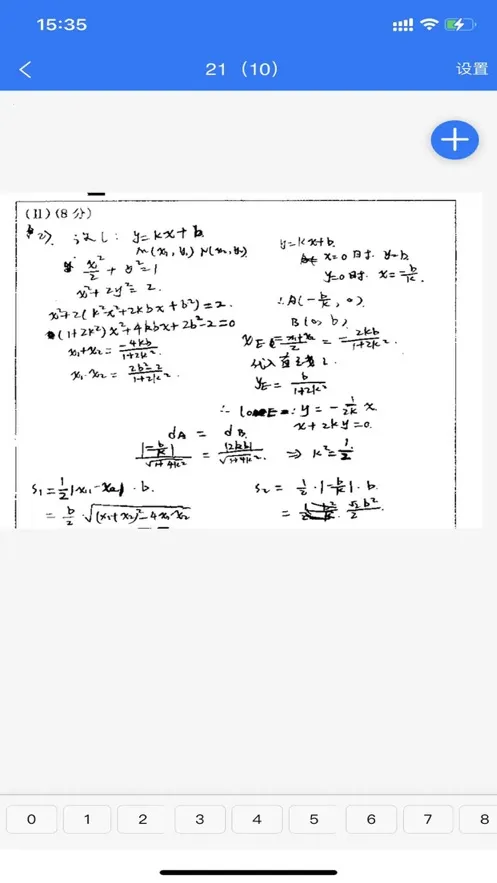 15:35
21（10）
设置
(II)(8分)
(2) 设l: y=kx+b
M(x₁,y₁) N(x₂,y₂)
x²/2+y²=1
x²+2y²=2
x²+2(k²x²+2kbx+b²)=2
(1+2k²)x²+4kbx+2b²-2=0
x₁+x₂=-4kb/1+2k²
x₁·x₂=2b²-2/1+2k²
y=kx+b
x=0时 y=b
y=0时 x=-b/k
∴A(-b/k, 0)
B(0, b)
x_E=x₁+x₂/2=-2kb/1+2k²
代入直线l
y_E=b/1+2k²
∴l_OE: y=-1/2k x
x+2ky=0
d_A = d_B
|-b/k|/√1+4k² = |2kb|/√1+4k² ⇒ k²=1/2
S₁=1/2|x₁-x₂|·b
=b/2·√(x₁+x₂)²-4x₁x₂
S₂=1/2·|-b/k|·b
=√2b²/2
0 1 2 3 4 5 6 7 8